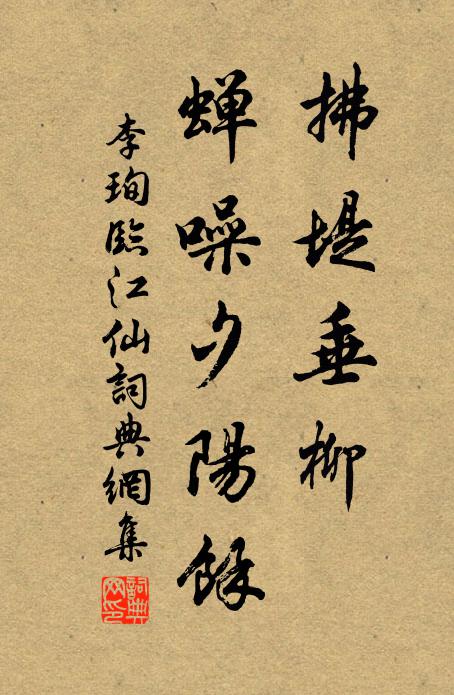 拂堤垂柳
蝉噪夕陽餘
李珣臨江仙詞典網集
詞典网印